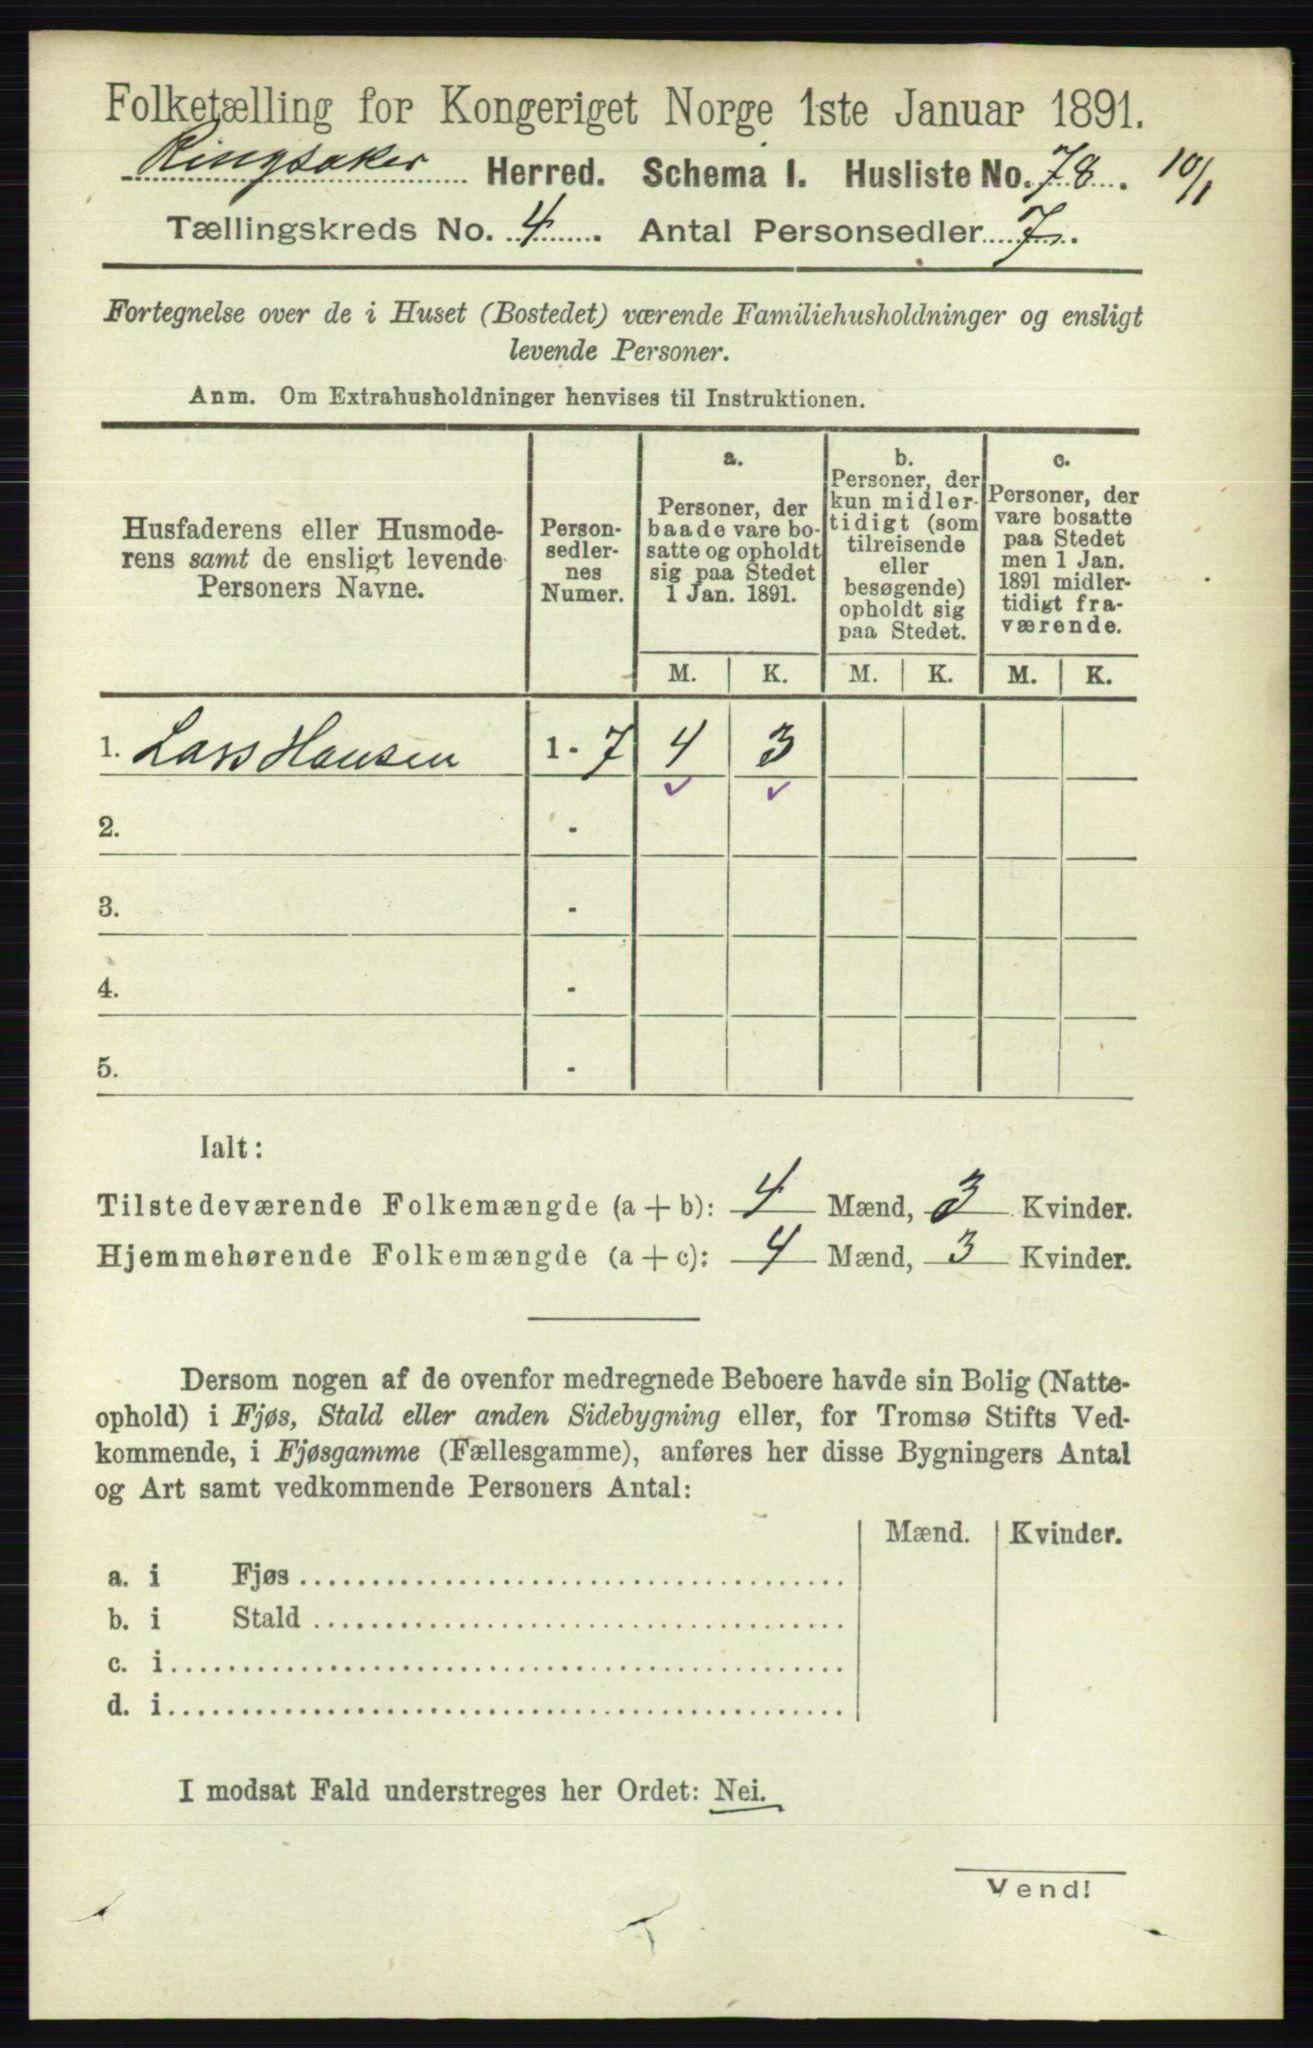 Folketælling for Kongeriget Norge 1ste Januar 1891.
Ringsaker Herred. Schema I. Husliste No. 78. 10/1
Tællingskreds No. 4. Antal Personsedler 7.
Fortegnelse over de i Huset (Bostedet) værende Familiehusholdninger og ensligt
levende Personer.
Anm. Om Extrahusholdninger henvises til Instruktionen.
Husfaderens eller Husmode-
rens samt de ensligt levende
Personers Navne.
Person-
sedler-
nes
Numer.
a.
Personer, der
baade vare bo-
satte og opholdt
sig paa Stedet
1 Jan. 1891.
b.
Personer, der
kun midler-
tidigt (som
tilreisende
eller
besøgende)
opholdt sig
paa Stedet.
c.
Personer, der
vare bosatte
paa Stedet
men 1 Jan.
1891 midler-
tidigt fra-
værende.
M. K. M. K. M. K.
1. Lars Hansen 1 - 7 4 3
2. -
3. -
4. -
5. -
Ialt:
Tilstedeværende Folkemængde (a + b): 4 Mænd, 3 Kvinder.
Hjemmehørende Folkemængde (a + c): 4 Mænd, 3 Kvinder.
Dersom nogen af de ovenfor medregnede Beboere havde sin Bolig (Natte-
ophold) i Fjøs, Stald eller anden Sidebygning eller, for Tromsø Stifts Ved-
kommende, i Fjøsgamme (Fællesgamme), anføres her disse Bygningers Antal
og Art samt vedkommende Personers Antal:
Mænd. Kvinder.
a. i Fjøs
b. i Stald
c. i
d. i
I modsat Fald understreges her Ordet: Nei.
Vend!